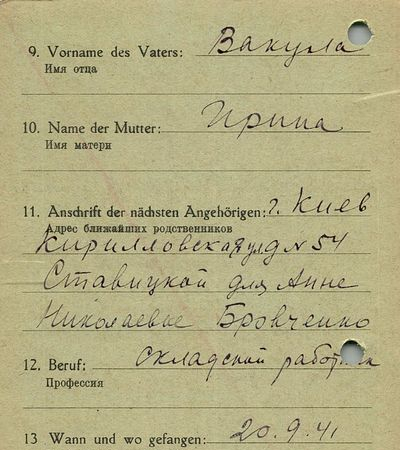 9. Vorname des Vaters: Вакула
Имя отца
10. Name der Mutter: Ирина
Имя матери
11. Anschrift der nächsten Angehörigen: г. Киев
Адрес ближайших родственников
Кирилловская ул д № 54
Ставицкой для Анне
Николаевне Бровченко
12. Beruf: складской
Профессия
13 Wann und wo gefangen: 20.9.41